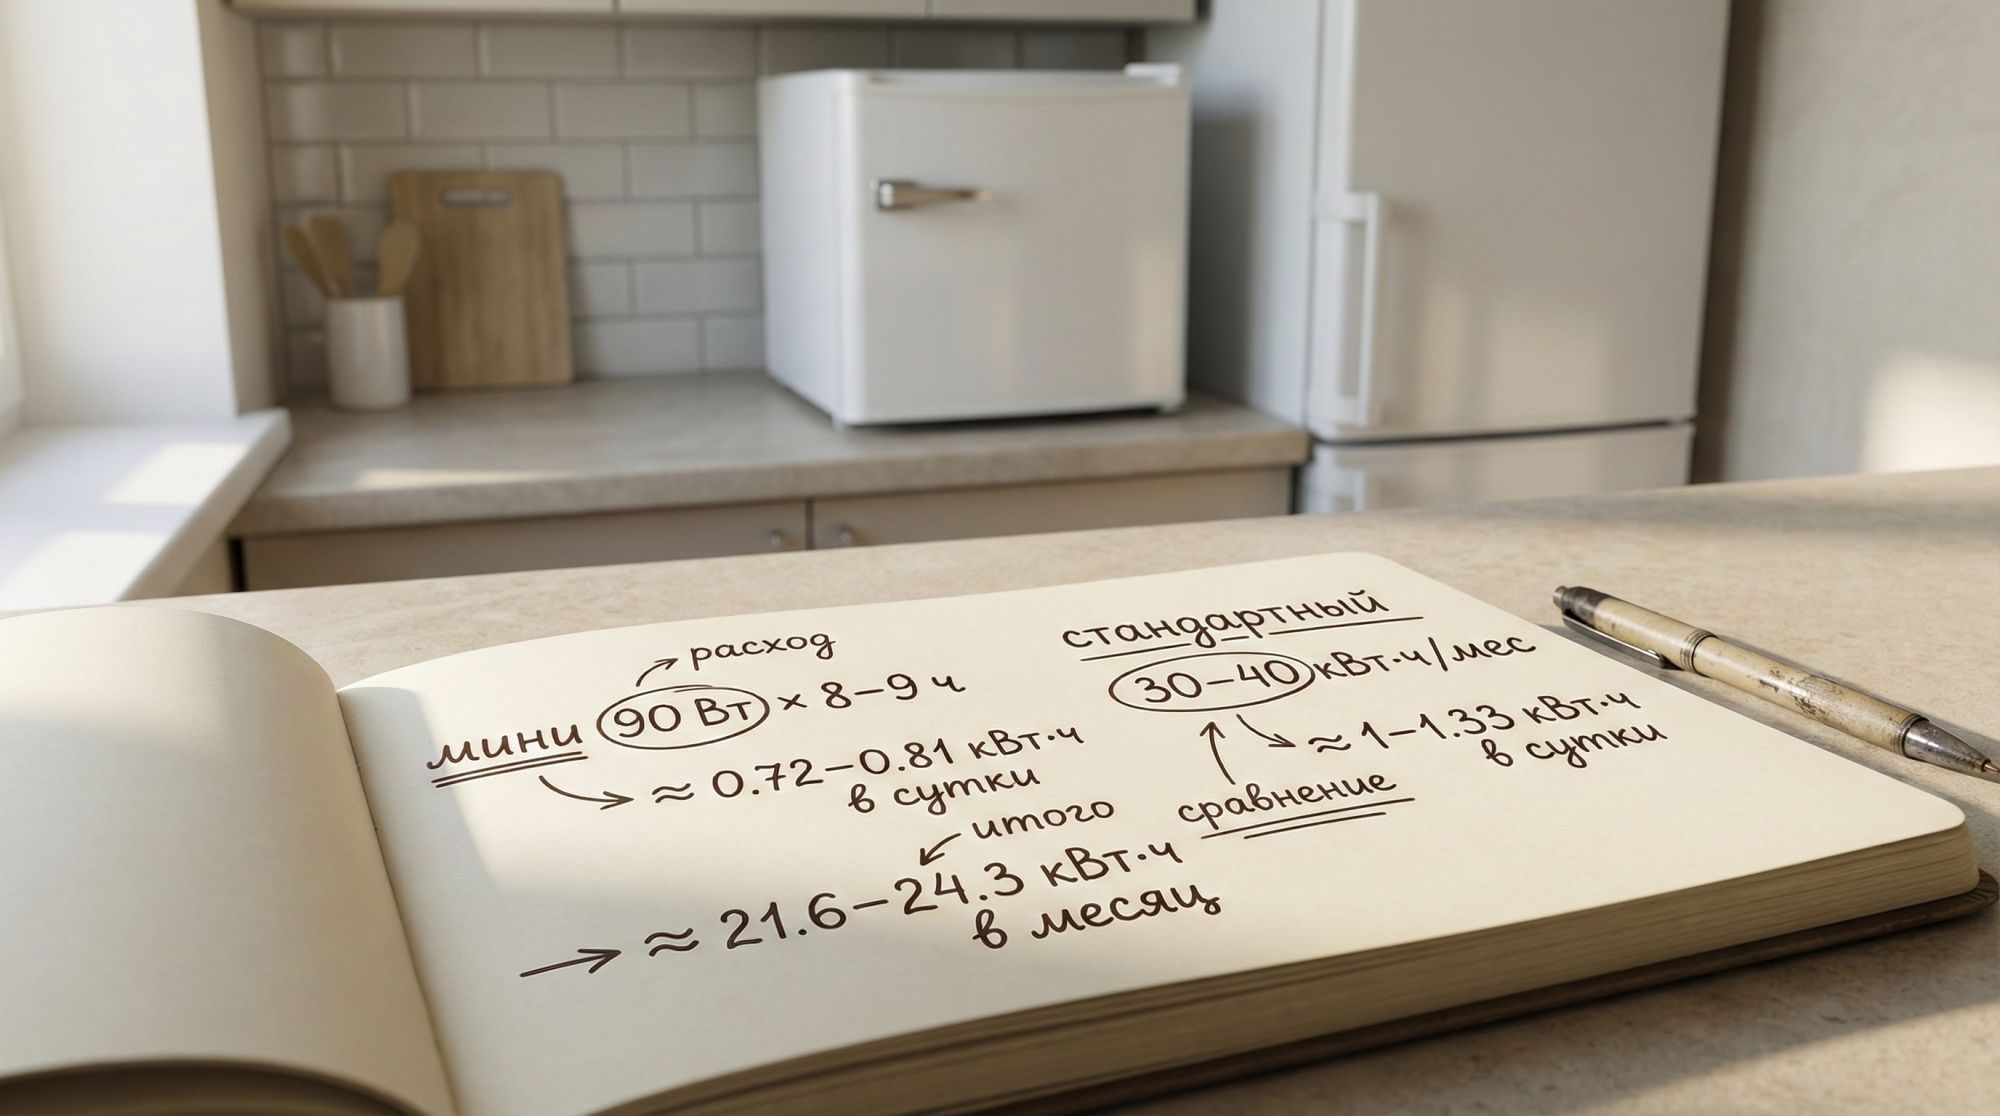 расход
мини 90 Вт × 8–9 ч
≈ 0.72–0.81 кВт·ч
в сутки
итого
≈ 21.6–24.3 кВт·ч
в месяц
стандартный
30–40 кВт·ч/мес
≈ 1–1.33 кВт·ч
в сутки
сравнение